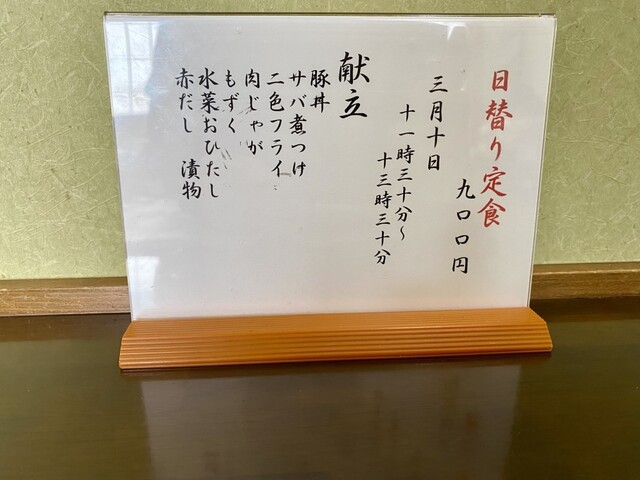 日替り定食
九〇〇円
三月十日
十一時三十分～
十三時三十分
献立
豚丼
サバ煮つけ
二色フライ
肉じゃが
もずく
水菜おひたし
赤だし 漬物